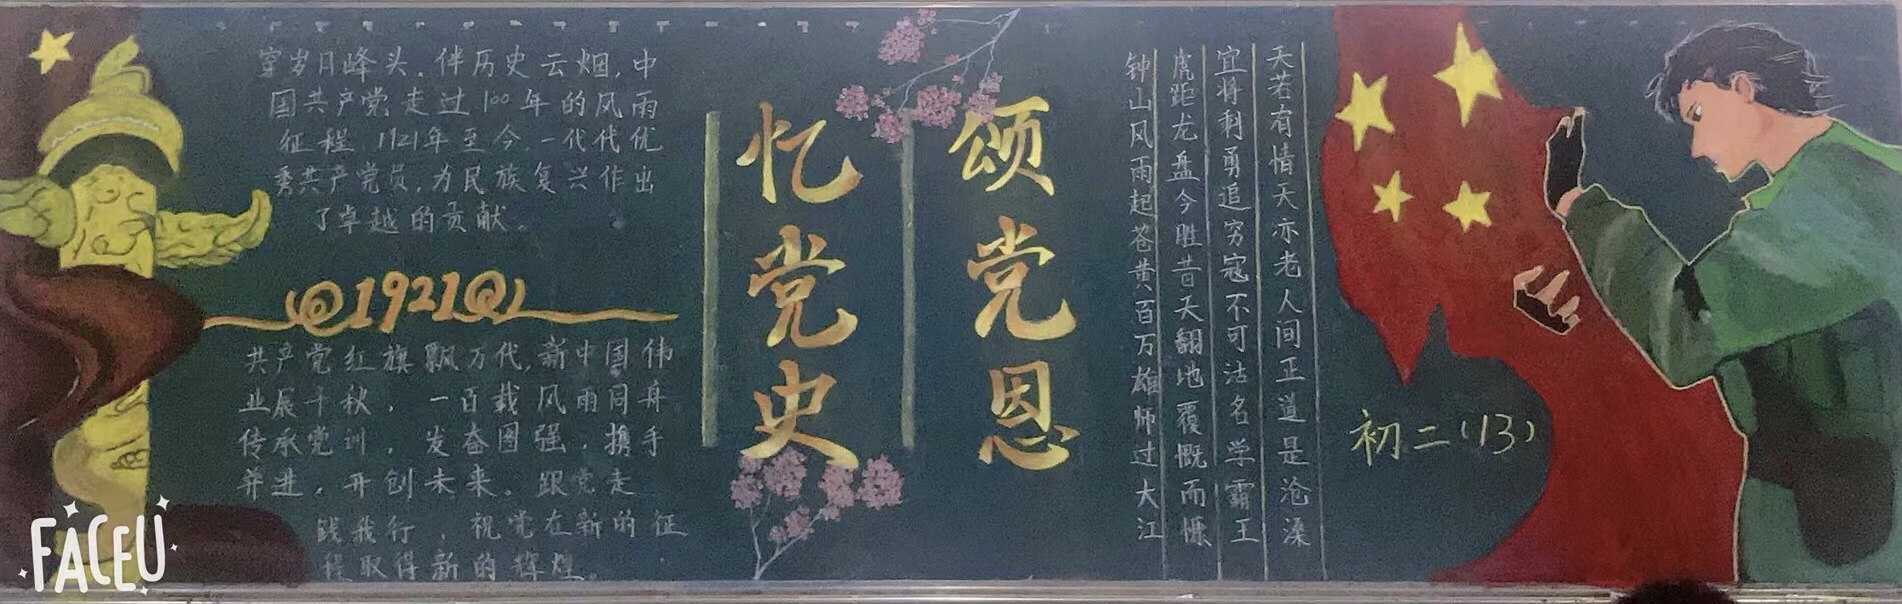 穿岁月峰头,伴历史云烟,中
国共产党走过100年的风雨
征程,1921年至今,一代代优
秀共产党员,为民族复兴作出
了卓越的贡献。
1921
共产党红旗飘万代,新中国伟
业展千秋,一百载风雨同舟
传承党训,发奋图强,携手
并进。开创未来。跟党走
我行,祝党在新的征
程取得新的辉煌。
忆党史
颂党恩
钟山风雨起苍黄百万雄师过大江
虎距龙盘今胜昔天翻地覆慨而慷
宜将剩勇追穷寇不可沽名学霸王
天若有情天亦老人间正道是沧桑
初二(13)
FACEU